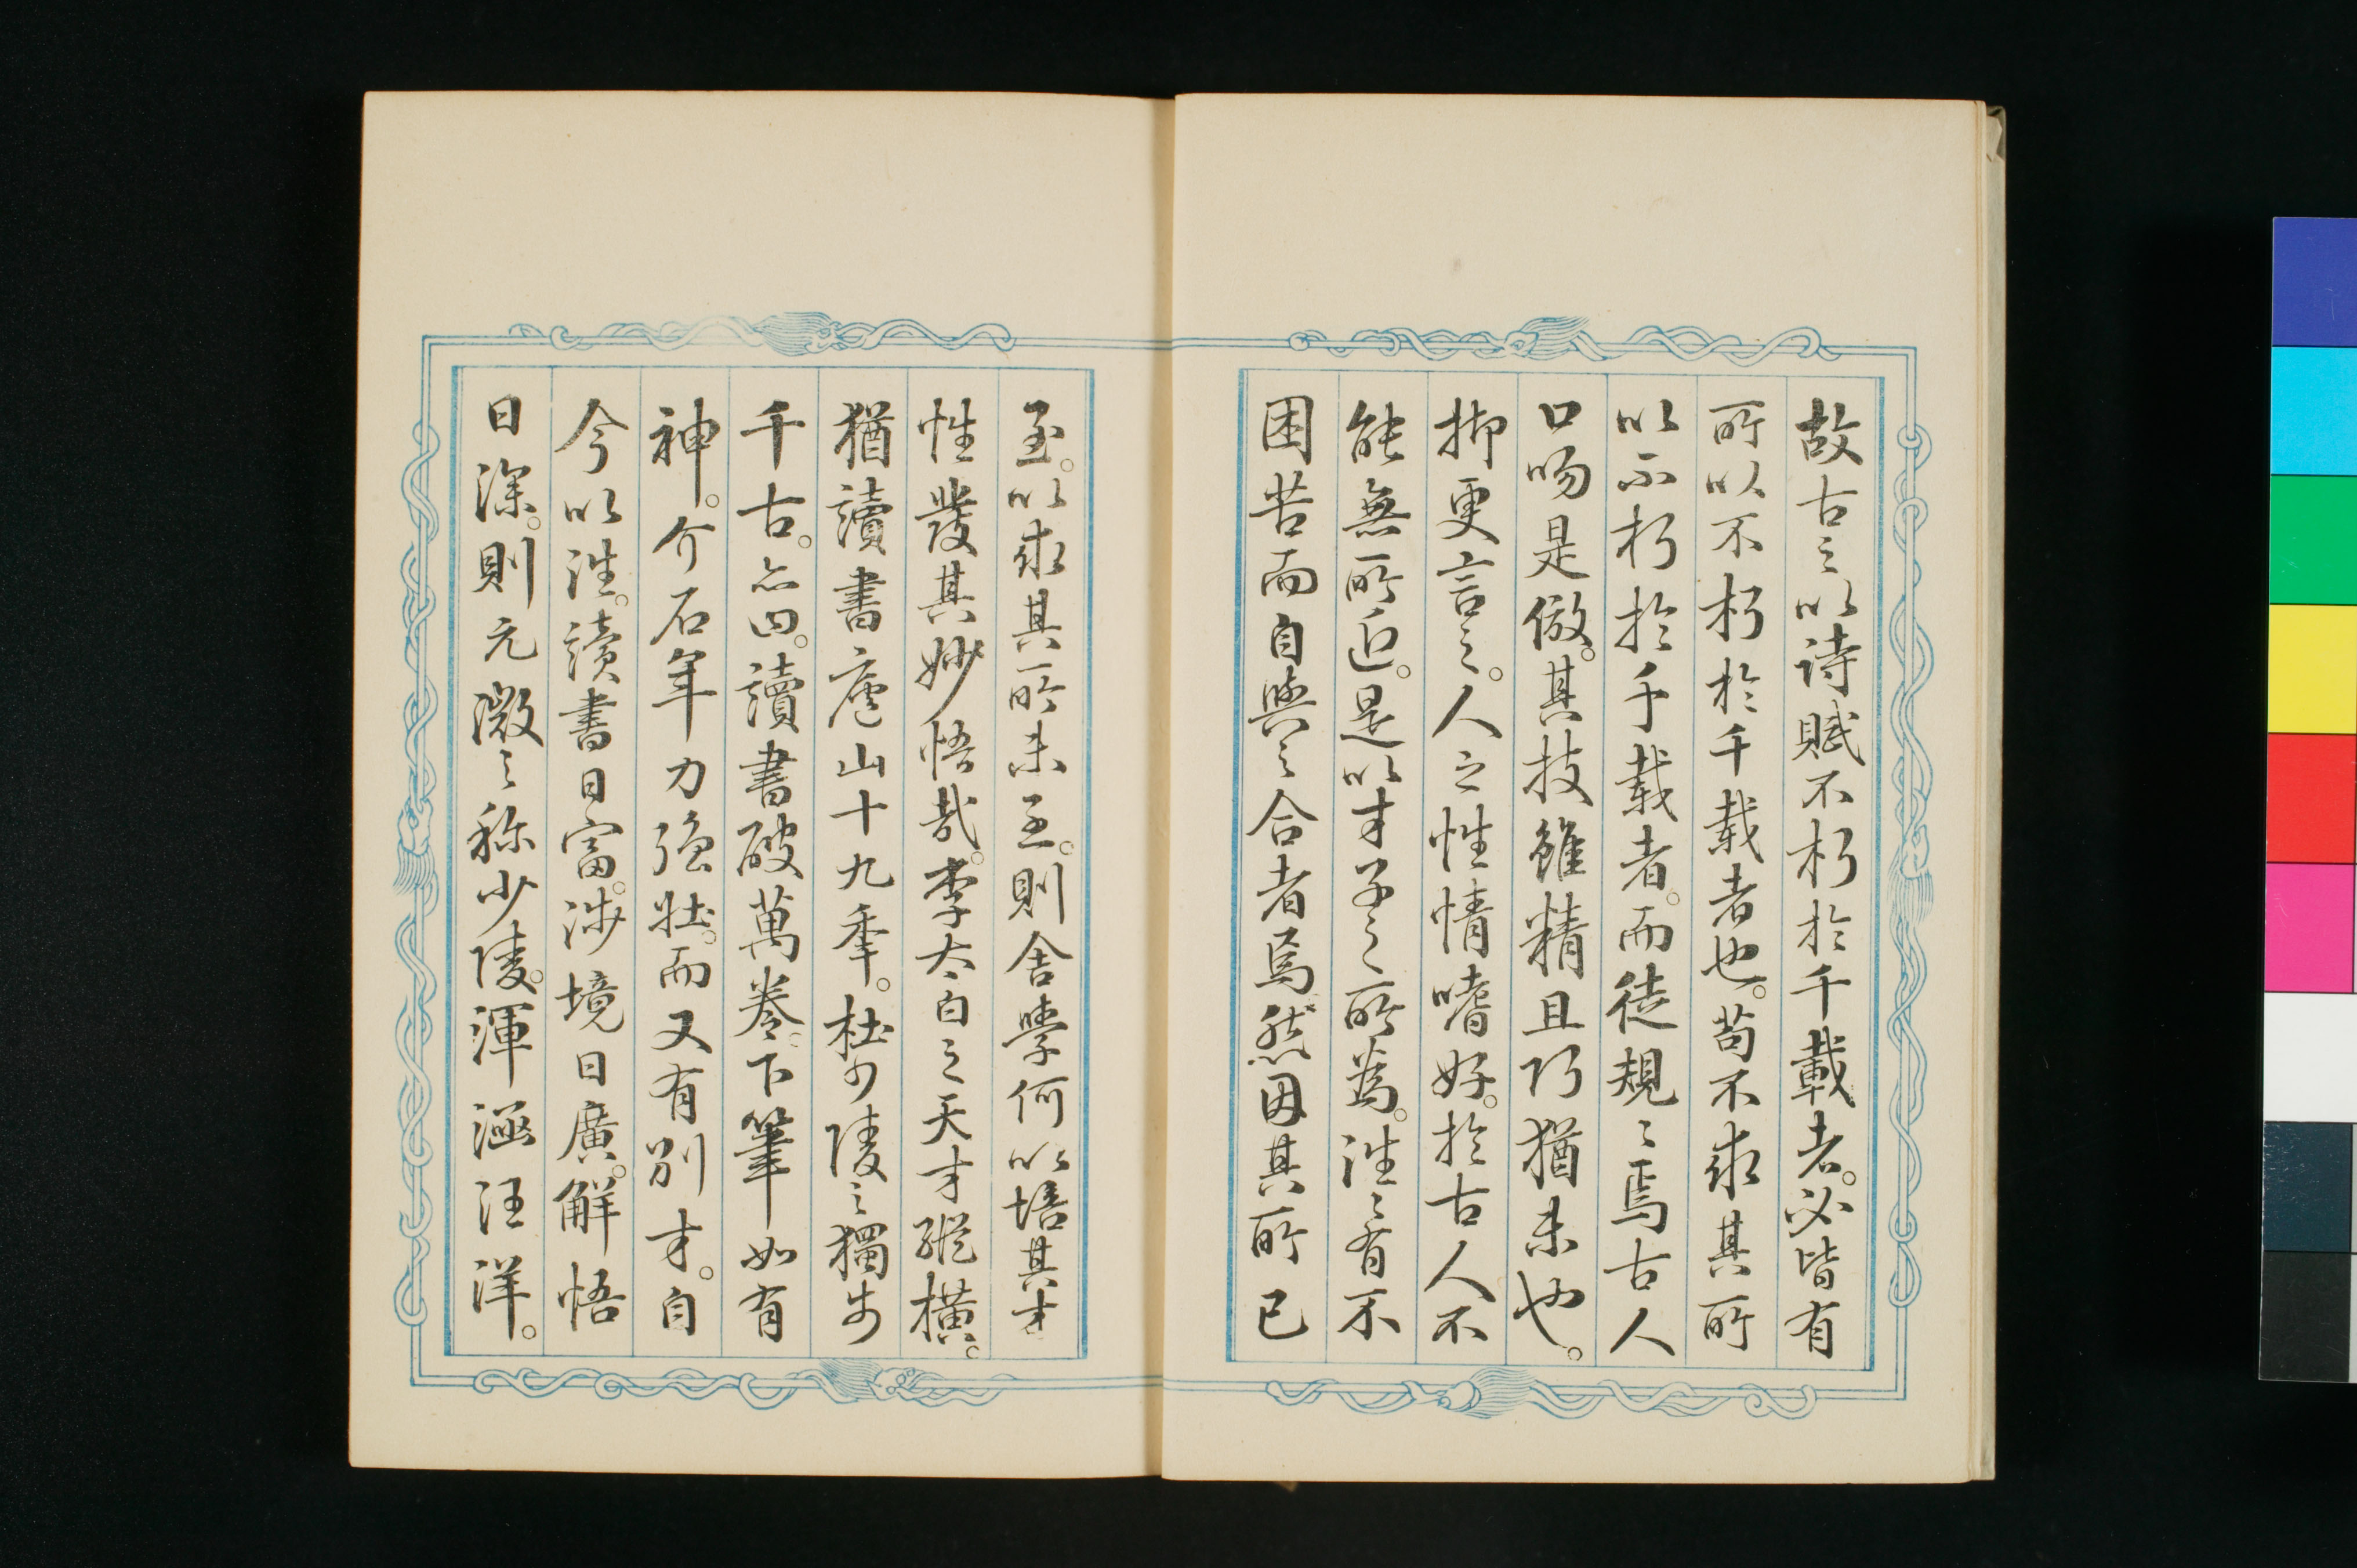 故古之以詩賦不朽於千載者。必皆有
所以不朽於千載者也。苟不求其所
以不朽於千載者。而徒規〻焉古人
口吻是倣。其技雖精且巧猶未也。
抑更言之。人之性情嗜好。於古人不
能無所近。是以才子之所為。往〻有不
困苦而自與之合者焉。然因其所已
至。以求其所未至。則舍學何以培其才
性發其妙悟哉。李太白之天才縱橫。
猶讀書廬山十九年。杜少陵之獨步
千古。亦曰。讀書破萬卷。下筆如有
神。介石年力強壯。而又有別才。自
今以往。讀書日富。涉境日廣。解悟
日深。則元微之称少陵。渾涵汪洋。